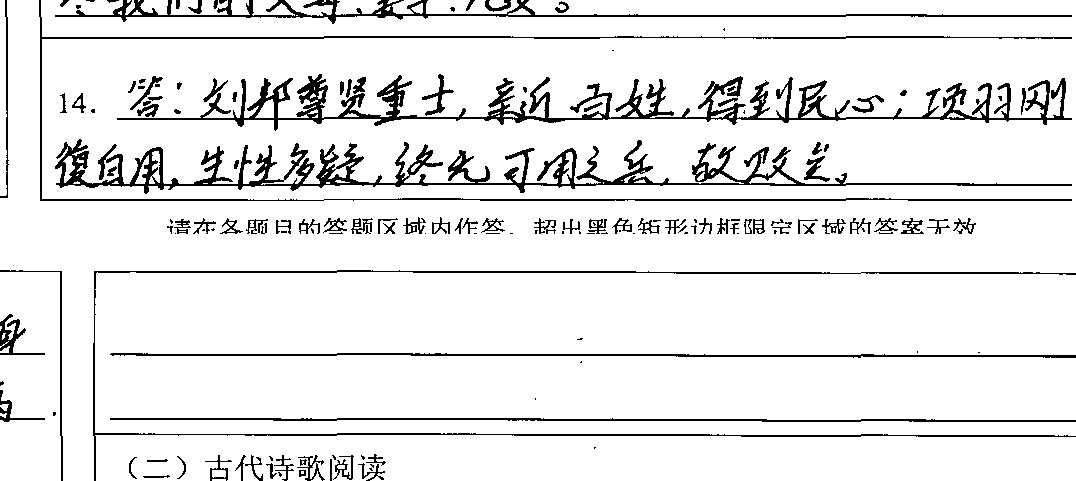 我们的父母、妻子、儿女。
14. 答：刘邦尊贤重士，亲近百姓，得到民心；项羽刚
復自用，生性多疑，终无可用之兵，故败矣。
请在各题目的答题区域内作答，超出黑色矩形边框限定区域的答案无效
（二）古代诗歌阅读